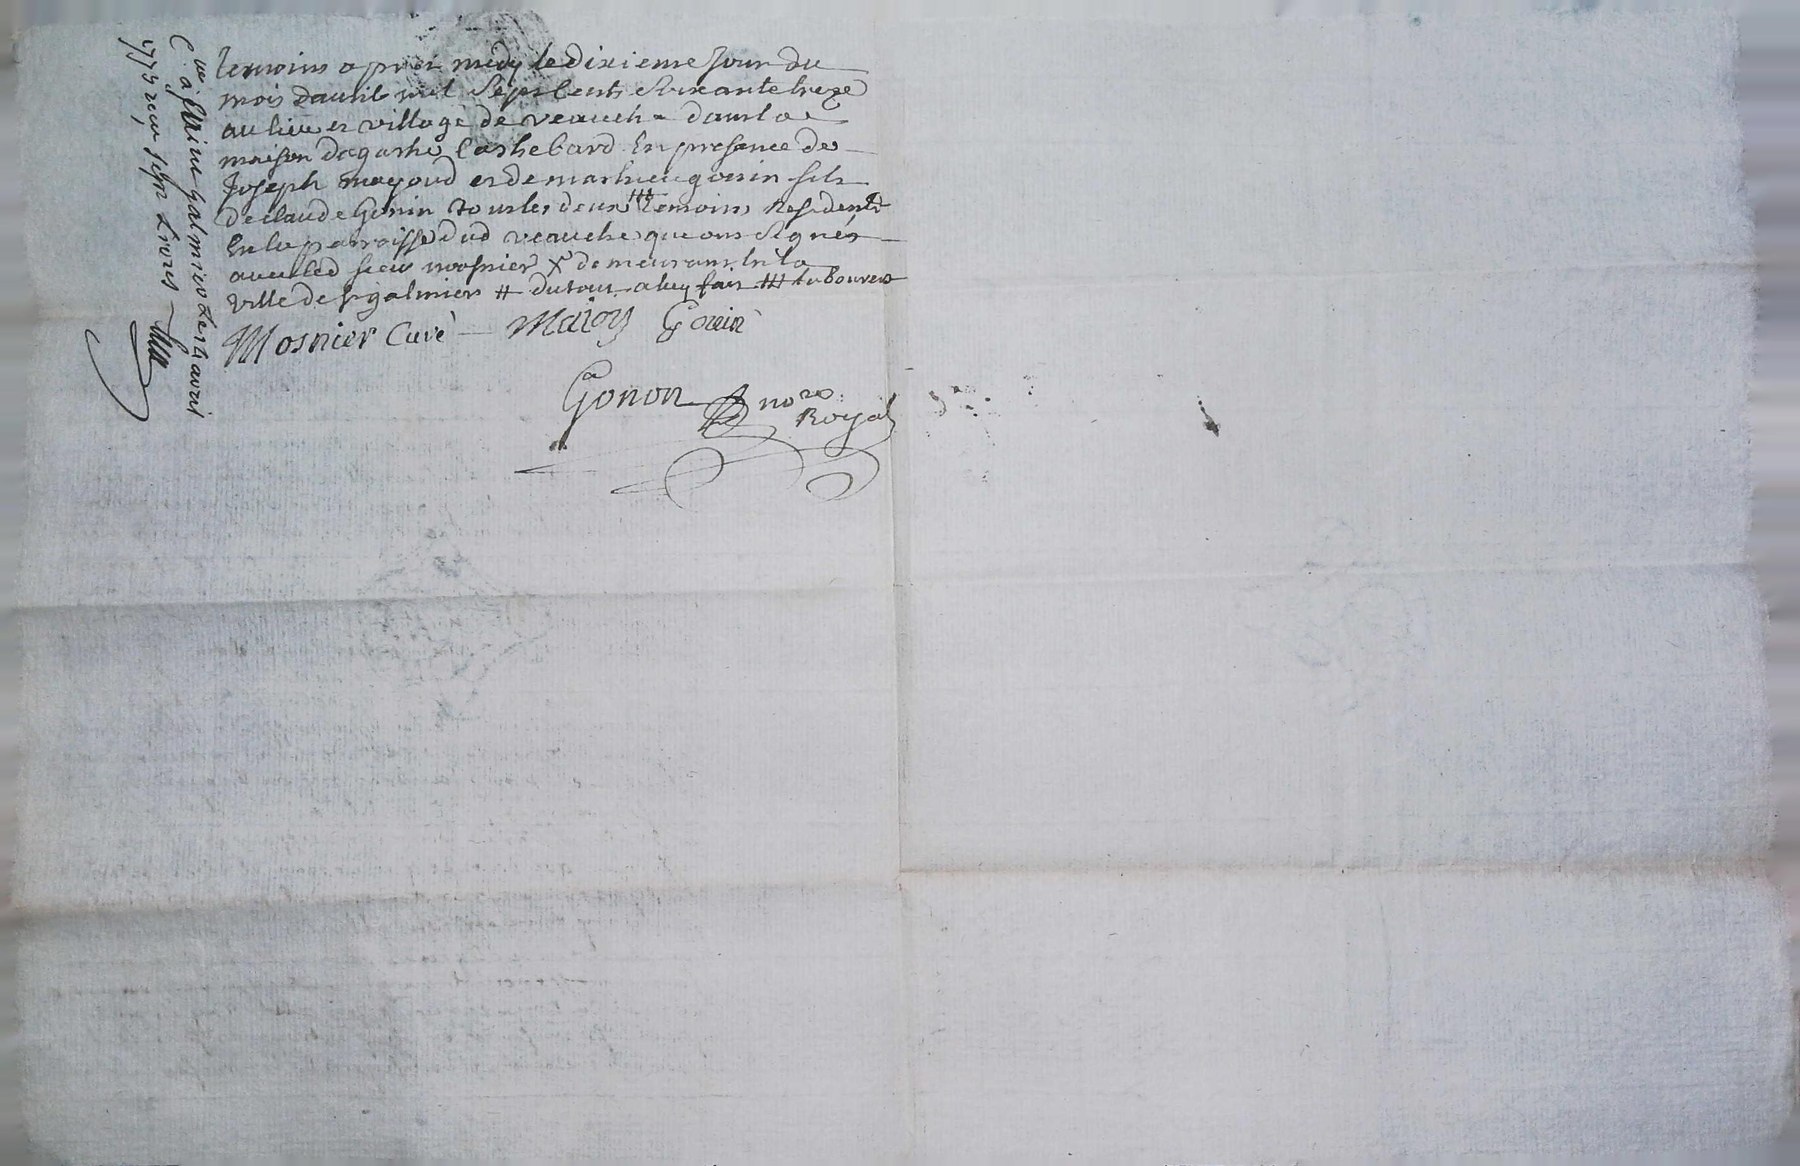 temoins apres midy le dixieme Jour du
mois davril mil Sept Cents Soixante treze
au lieu et village de veauche dans la
maison dagathe En presence de
Joseph mayoud et de mathieu gonin fils
de Claude Gonin tous les deux ## temoins Residents
En la parroisse dud veauche que ont signés
avec led sieur mosnier X demeurant En la
ville de st galmier # du tout a luy fait ###
Mosnier Curé Maioy Gonin
Gonon no.re
Royal
C.lé à St galmier avril
1773 reçu sept Livres